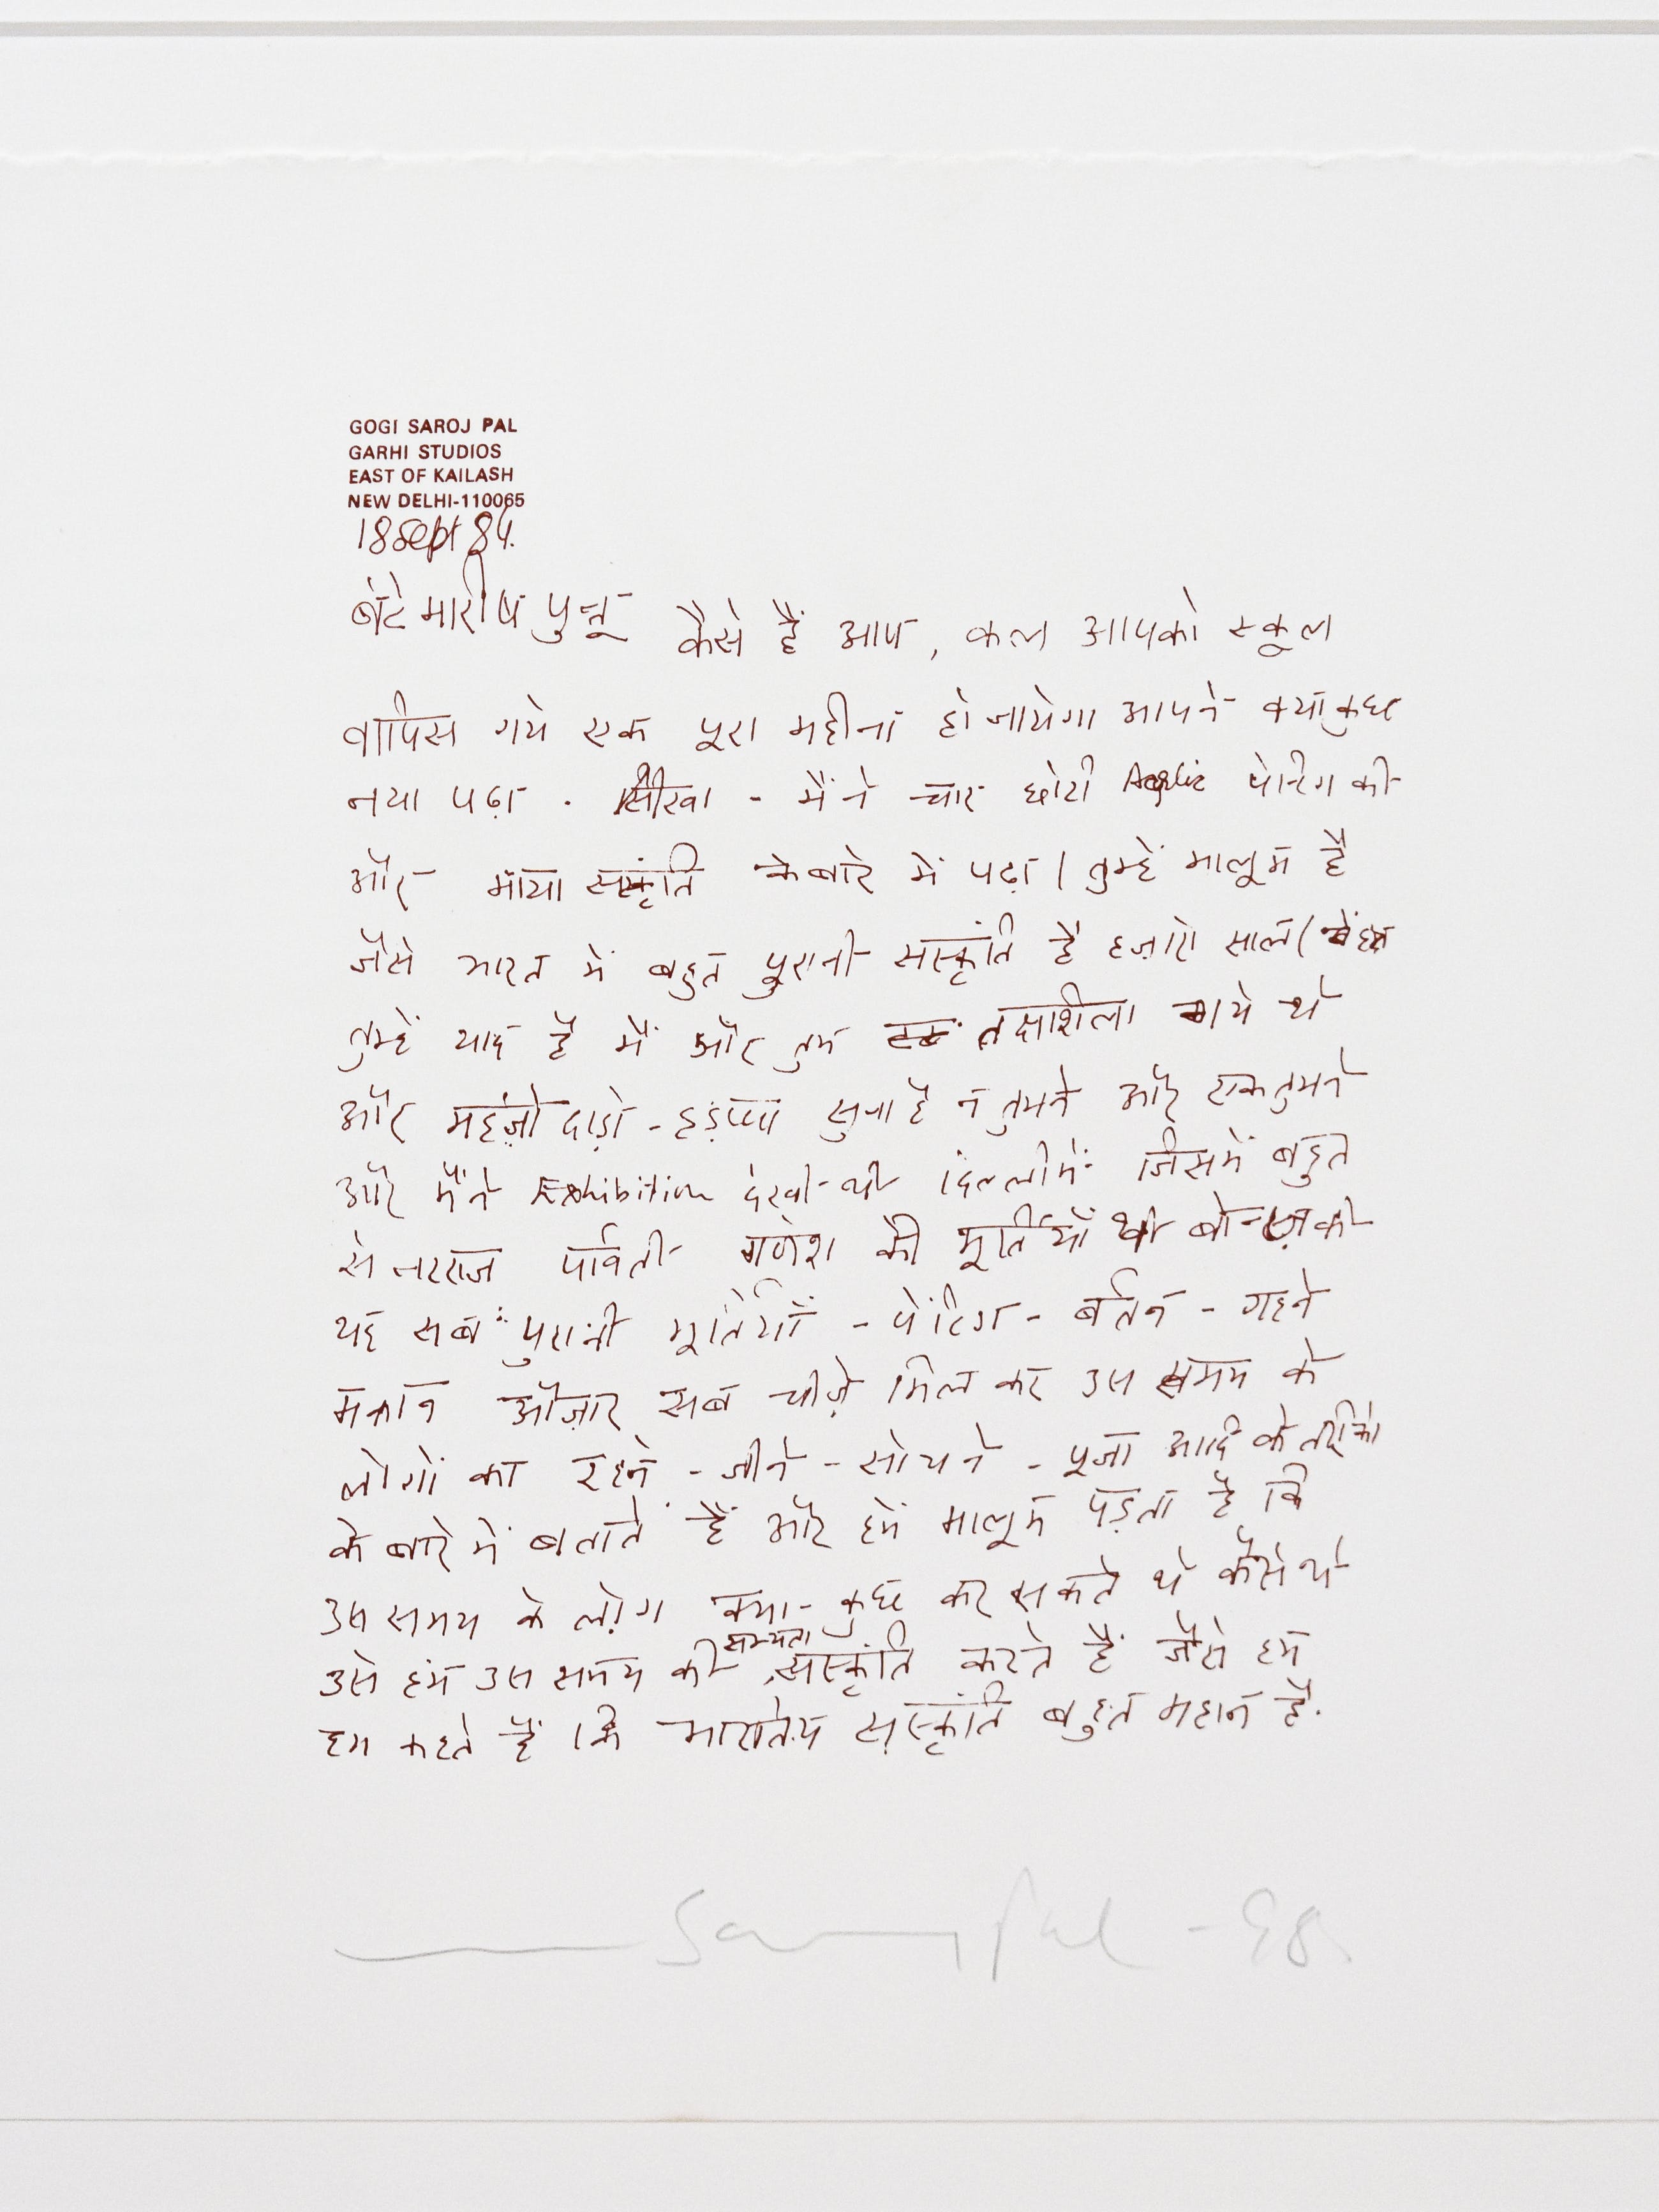 GOGI SAROJ PAL
GARHI STUDIOS
EAST OF KAILASH
NEW DELHI-110065
18 Sept 84.
बेटे मारीष पुन्नू कैसे हैं आप, कल आपको स्कूल
वापिस गये एक पूरा महीना हो जायेगा आपने क्या कुछ
नया पढ़ा . सीखा - मैंने चार छोटी पेन्टिग की
और माया संस्कृति के बारे में पढ़ा । तुम्हें मालूम है
जैसे भारत में बहुत पुरानी संस्कृति है हज़ारो साल
तुम्हें याद है मैं और तुम तक्षाशिला गये थे
और महंजो दाड़ो - हड़प्पा सुना है न तुमने और एक तुमने
और मैंने Exhibition देखी थी दिल्ली में जिसमें बहुत
से नटराज पार्वती गणेश की मूर्तियाँ थी बोन्ज़ की
यह सब पुरानी मूर्तियाँ - पेंटिग - बर्तन - गहने
मकान औज़ार सब चीज़े मिल कर उस समय के
लोगों का रहने - जीने - सोचने - पूजा आदि के तरीको
के बारे में बताते हैं और हमें मालूम पड़ता है कि
उस समय के लोग क्या - कुछ कर सकते थे कैसे थे
उसे हम उस समय की सभ्यता, संस्कृति कहते हैं जैसे हम
हम कहते हैं कि भारतिय संस्कृति बहुत महान है.
Saroj Pal - 98.